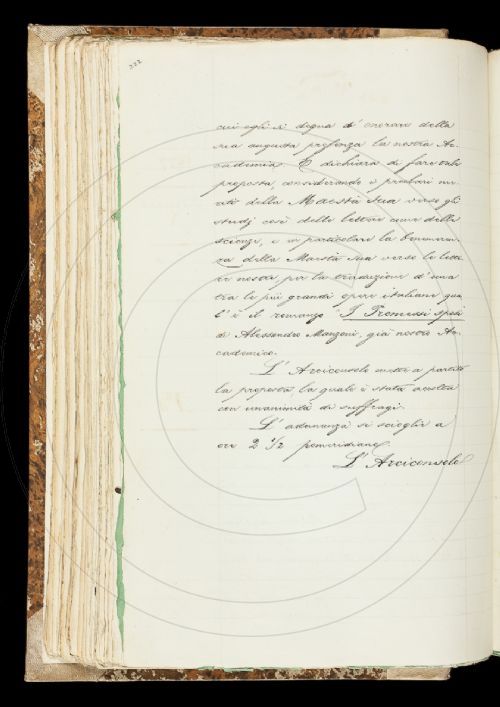 222
cui egli si degna d' onorare della
sua augusta presenza la nostra Ac-
cademia. E dichiara di fare tale
proposta, considerando i preclari me-
riti della Maestà Sua verso gli
studj così delle lettere come delle
scienze, e in particolare la benemeren-
za della Maestà Sua verso le lette-
re nostre per la traduzione d' una
tra le più grandi opere italiane qua-
l' è il romanzo "I Promessi sposi
di Alessandro Manzoni, già nostro Ac-
cademico.
L' Arciconsolo mette a partito
la proposta, la quale è stata accolta
con unanimità di suffragi.
L' adunanza si scioglie a
ore 2 1/2 pomeridiane.
L' Arciconsolo